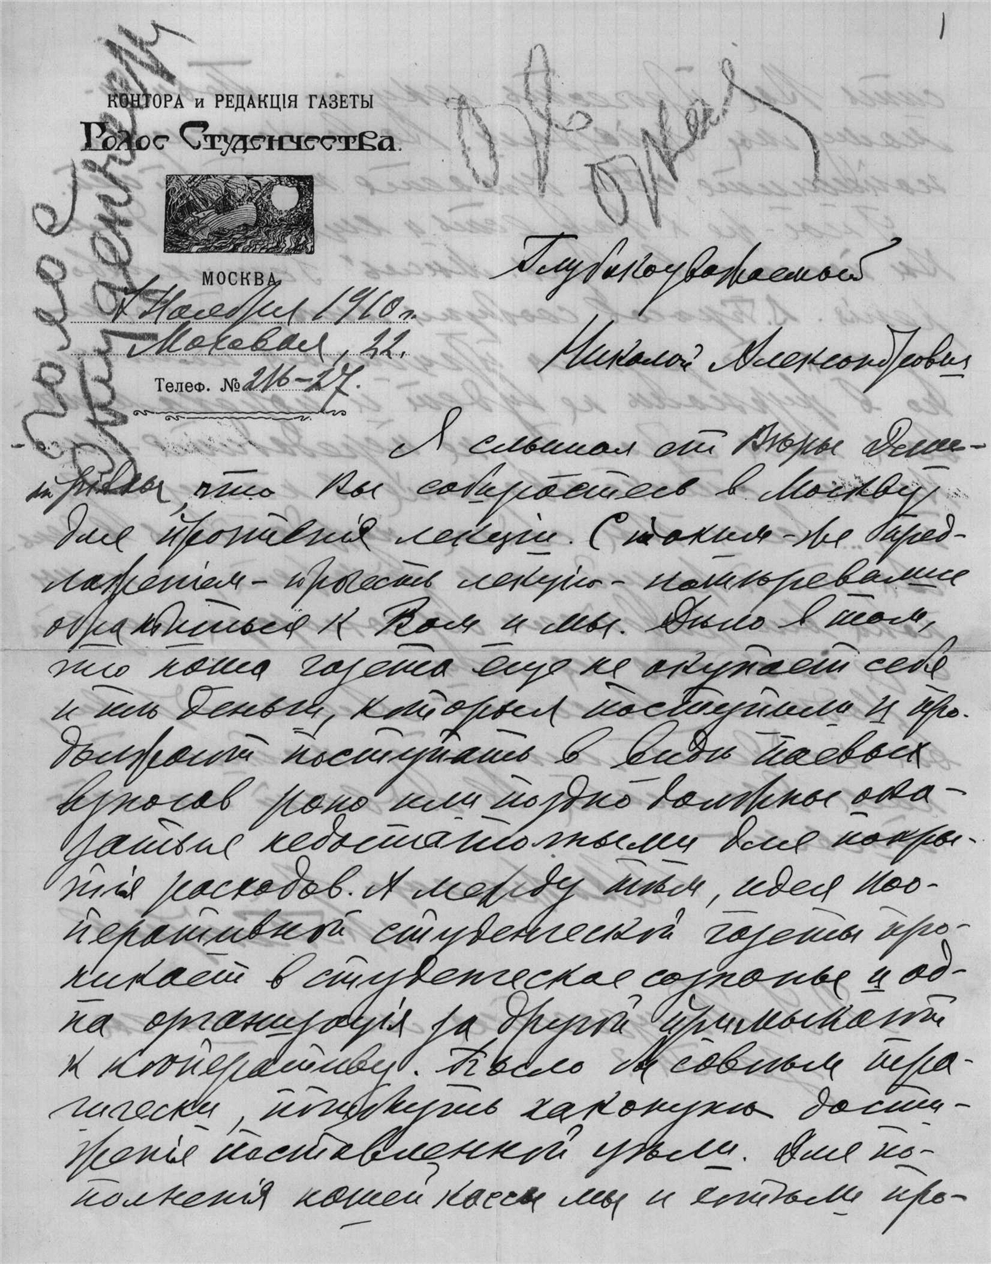 1
Голос
Студенчеству
КОНТОРА и РЕДАКЦІЯ ГАЗЕТЫ
Голос Студенчества.
МОСКВА
Ноября 1910 г.
Моховая, 22.
Телеф. № 216-27.
Глубокоуважаемый
Николай Александрович
Я слышал от Веры Дмит-
ріевны, что Вы собираетесь в Москву
для прочтенія лекціи. С таким-же пред-
ложеніем - прочесть лекцію - намѣревались
обратиться к Вам и мы. Дѣло в том,
что наша газета еще не окупает себя
и тѣ деньги, которыя поступили и про-
должают поступать в видѣ паевых
взносов рано или поздно должны ока-
заться недостаточными для покры-
тія расходов. А между тѣм, идея коо-
перативной студенческой газеты про-
никает в студенческое сознанье и од-
на организація за другой примыкают
к кооперативу. Было бы совсѣм тра-
гически, погибнуть наканунѣ дости-
женія поставленной цѣли. Для по-
полненія нашей кассы мы и хотѣли про-